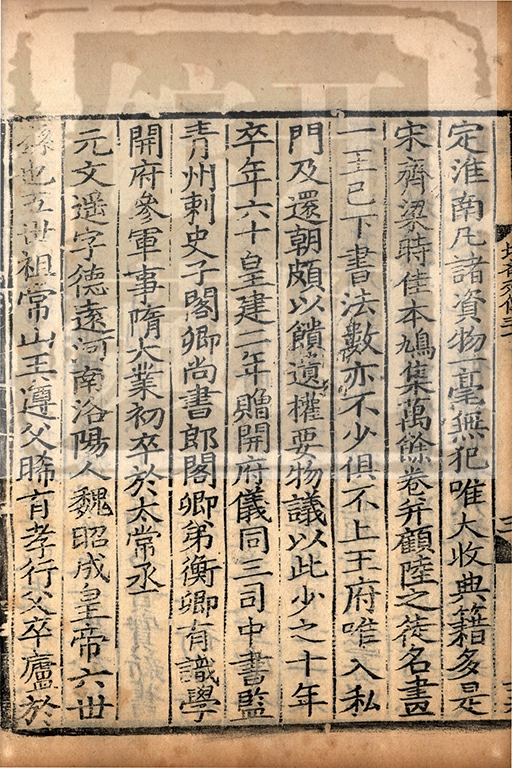 定淮南凡諸資物一毫無犯唯大收典籍多是
宋齊梁時佳本鳩集萬餘卷并顧陸之徒名畫
二王已下書法數亦不少俱不上王府唯入私
門及還朝頗以饋遺權要物議以此少之十年
卒年六十皇建二年贈開府儀同三司中書監
青州刺史子閣卿尚書郎閣卿弟衡卿有識學
開府參軍事隋大業初卒於太常丞
元文遥字德遠河南洛陽人魏昭成皇帝六世
孫也五世祖常山王遵父晞有孝行父卒廬於